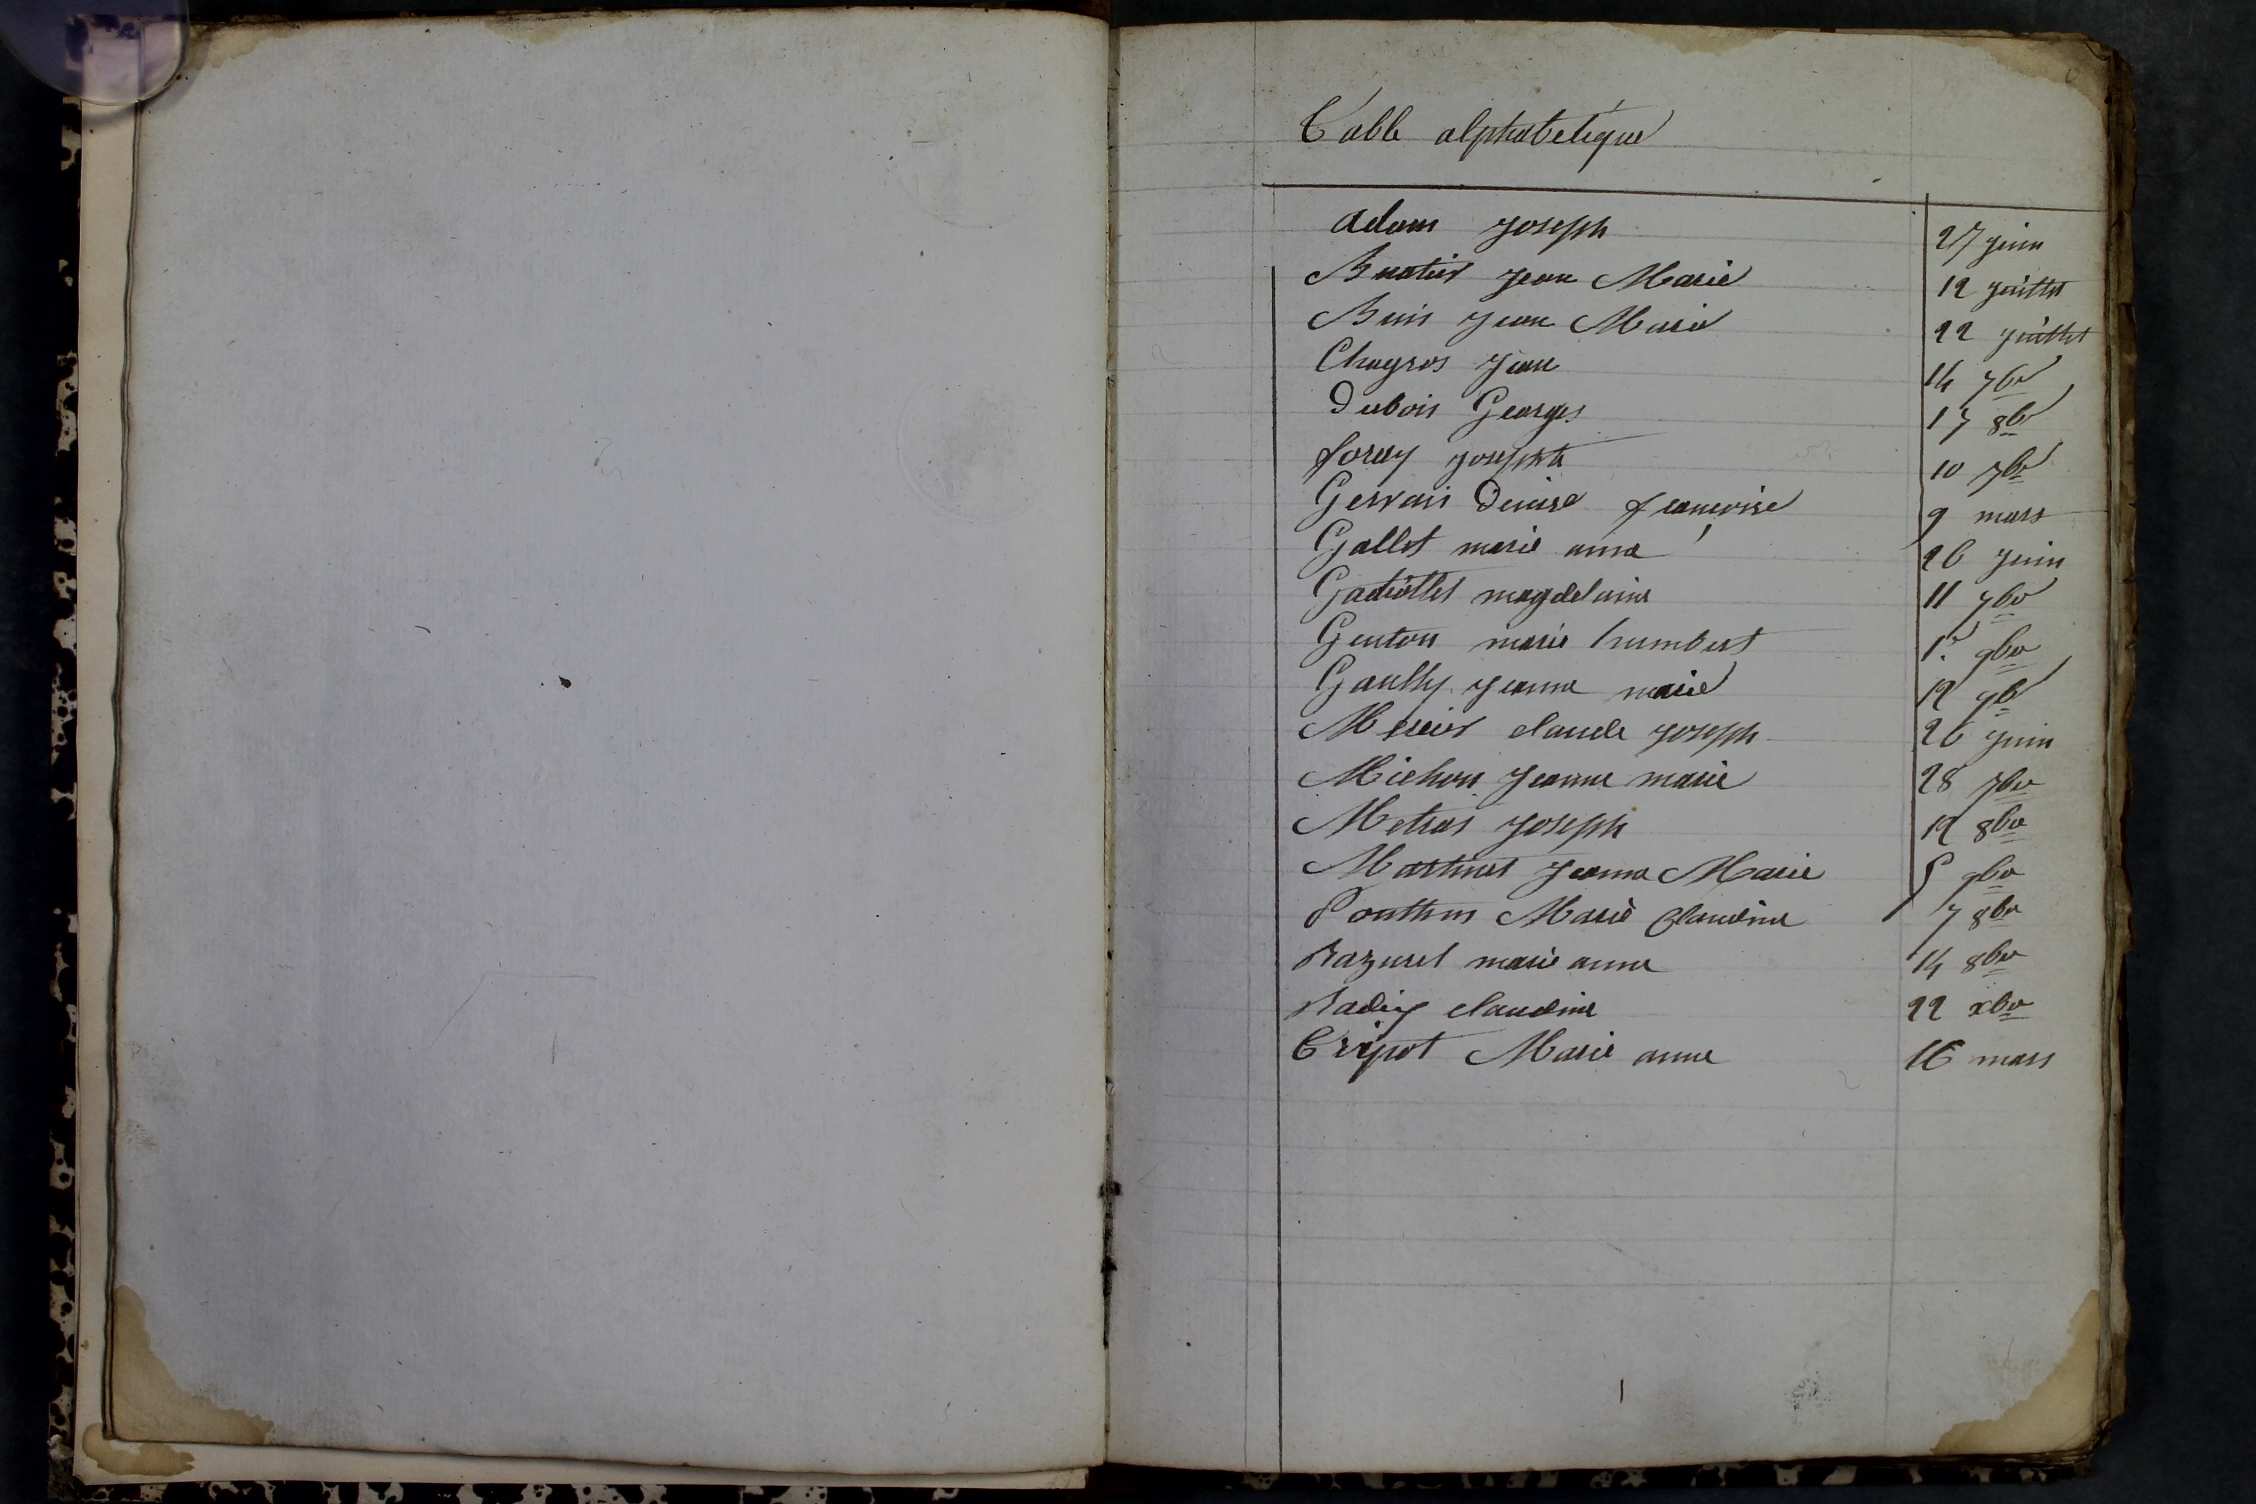 Table alphabetique
Adam Joseph 27 juin
Buatier Jean Marie 12 juillet
Buis Jean Marie 22 juillet
Chagros Jean 14 7bre
Dubois Georges 17 8bre
foray Josephte 10 7bre
Gervais Denise francoise 9 mars
Gallet marie anne 26 juin
Gadiollet magdelaine 11 7bre
Genton marie humbert 1er 9bre
Gaulty jeanne marie 12 9bre
Mercier claude joseph 26 juin
Michon Jeanne marie 28 7bre
Metras Joseph 12 8bre
Martinet Jeanne Marie 5 9bre
Ponthus Marie Claudine 7 8bre
Razurel marie anne 14 8bre
Radix claudine 22 xbre
Tripot Marie anne 16 mars